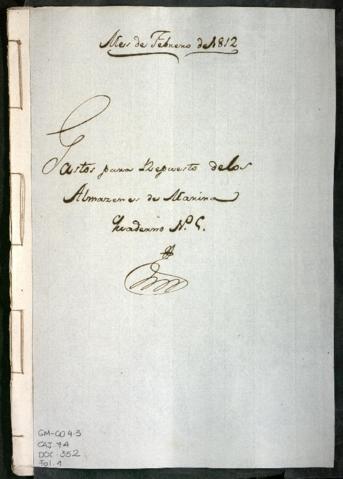 Mes de Febrero de 1812
Gastos para Repuesto de los
Almazenes de Marina
Quaderno N.º 5.
GM-CO 4-3
CAJ. 74
DOC: 352
Fol. 1